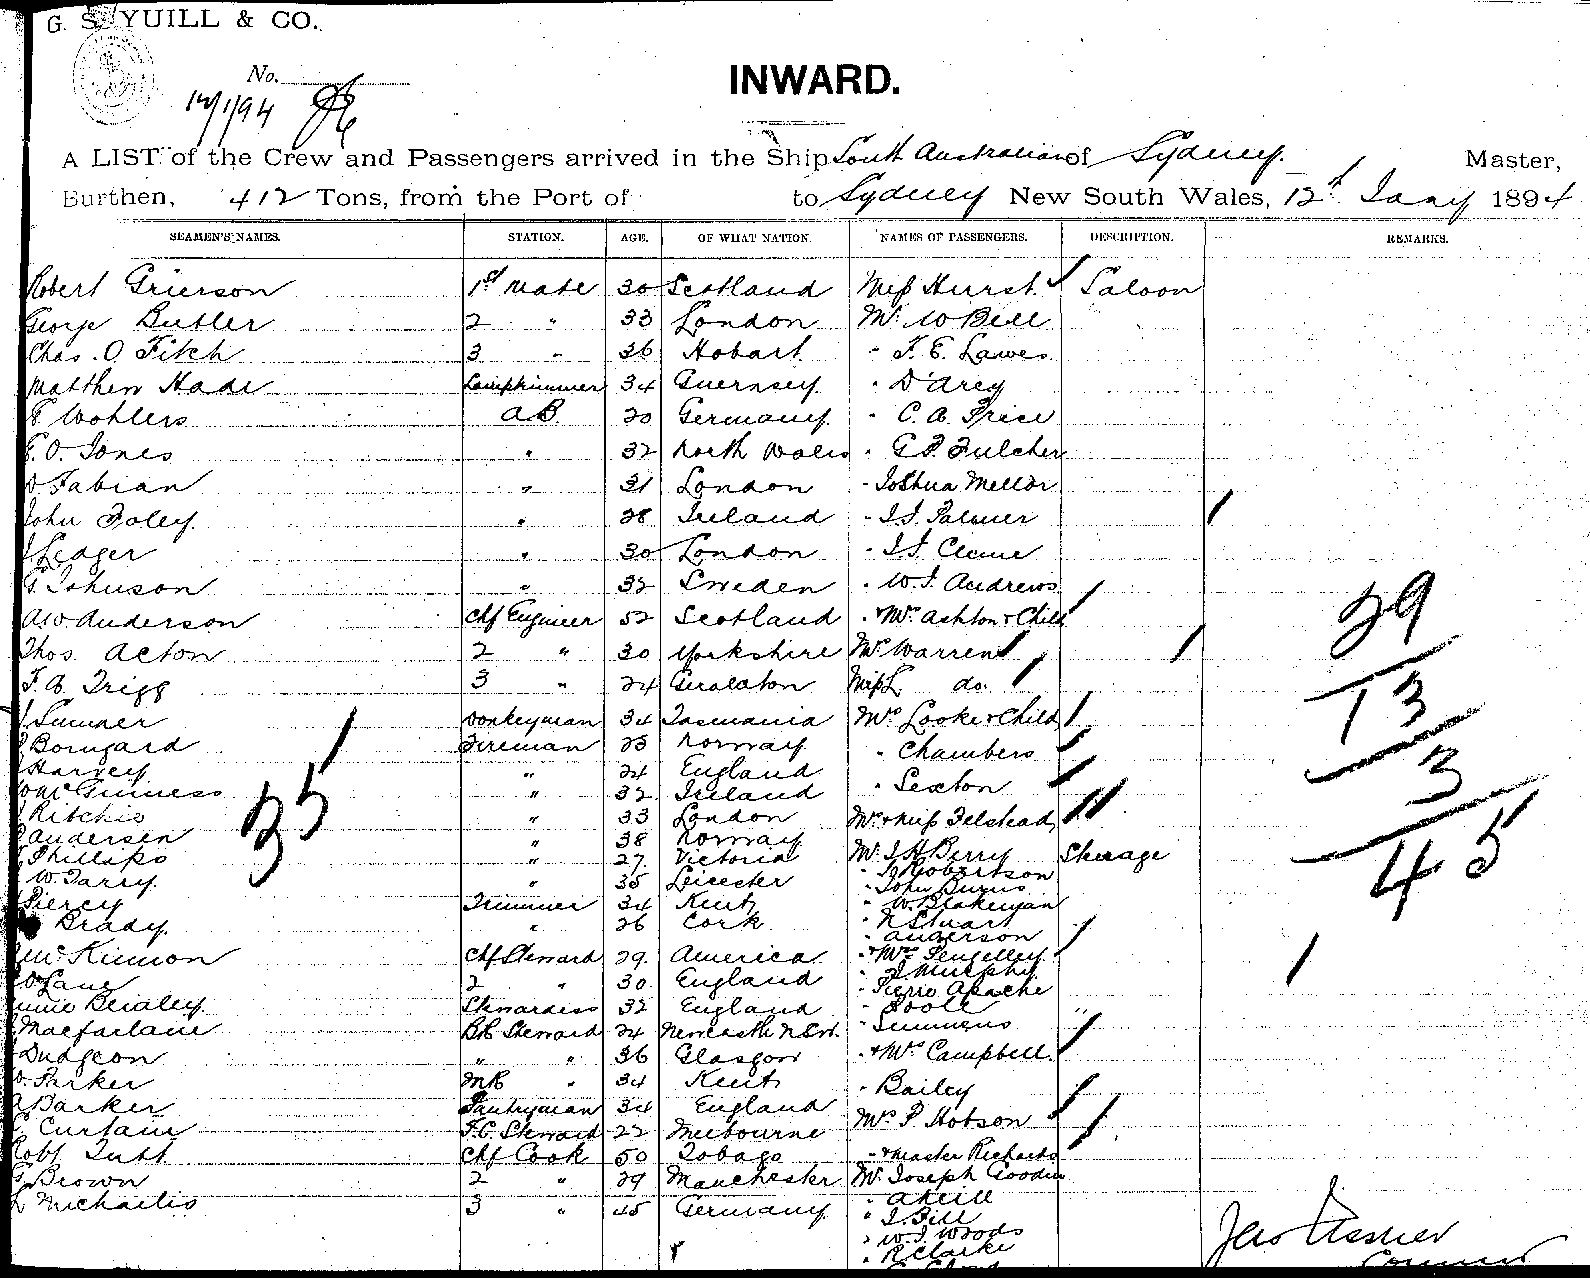 G. S. YUILL & CO.
No.
12/1/94
INWARD.
A LIST of the Crew and Passengers arrived in the Ship South Australian of Sydney. Master,
Burthen, 412 Tons, from the Port of to Sydney New South Wales, 12th Jany 1894
SEAMEN'S NAMES. STATION. AGE. OF WHAT NATION. NAMES OF PASSENGERS. DESCRIPTION. REMARKS.
Robert Grierson 1st Mate 30 Scotland Miss Hurst Saloon
George Butler 2 " 33 London Mr. W Bell
Chas. O. Fitch 3 " 36 Hobart " F. E. Lawes
Matthew Hade Lamptrimmer 34 Guernsey " D'Arcy
F Wohlers AB 20 Germany " C. A. Price
E. O. Jones " 32 North Wales " G F. Fulcher
D Fabian " 31 London " Joshua Mellor
John Foley " 28 Ireland " J. J. Palmer
J Leager " 30 London " J. J.
G Johnson " 32 Sweden " W. J. Andrews
29
AW Anderson Chf Engineer 52 Scotland " + Mrs Ashton + Child
Thos. Acton 2 " 30 Yorkshire Mrs Warren
F. A. Trigg 3 " 24 Geralaton Miss L do.
13
J Sumner Donkeyman 34 Tasmania Mrs Looker + Child
Bomgard Fireman 25 Norway " Chambers
Harvey " 24 England " Sexton
3
McGuiness " 32 Ireland
35
Ritchie " 33 London Mrs + Miss Felstead
Andersen " 38 Norway
Phillips " 27 Victoria Mr. J H Berry Steerage
45
W. Tarry " 35 Leicester " J Robertson
" John Burns
Piercy Trimmer 34 Kent " W. Blakeman
Brady " 26 Cork " N Stuart
" Anderson
McKinnon Chf Steward 29 America " + Mrs Pengelley
" J Murphy
D Lane 2 " 30 England " Pierre Apache
Annie Beialey Stewardess 32 England " Poole "
Macfarlane B/R Steward 24 Newcastle N.S.W. " Simmens
Dudgeon " " 36 Glasgow " + Mrs Campbell
D. Parker MR " 34 Kent " Bailey
Barker Pantryman 34 England
Curtain F.C. Steward 22 Melbourne Mrs P Hobson
Robt. Tutt Chf Cook 50 Tobago " + Master Richards
G Brown 2 " 29 Manchester Mr. Joseph Goodin
L Michaelis 3 " 45 Germany " A Neill
" J. Fill
" W. J. Woods
" R Clarke